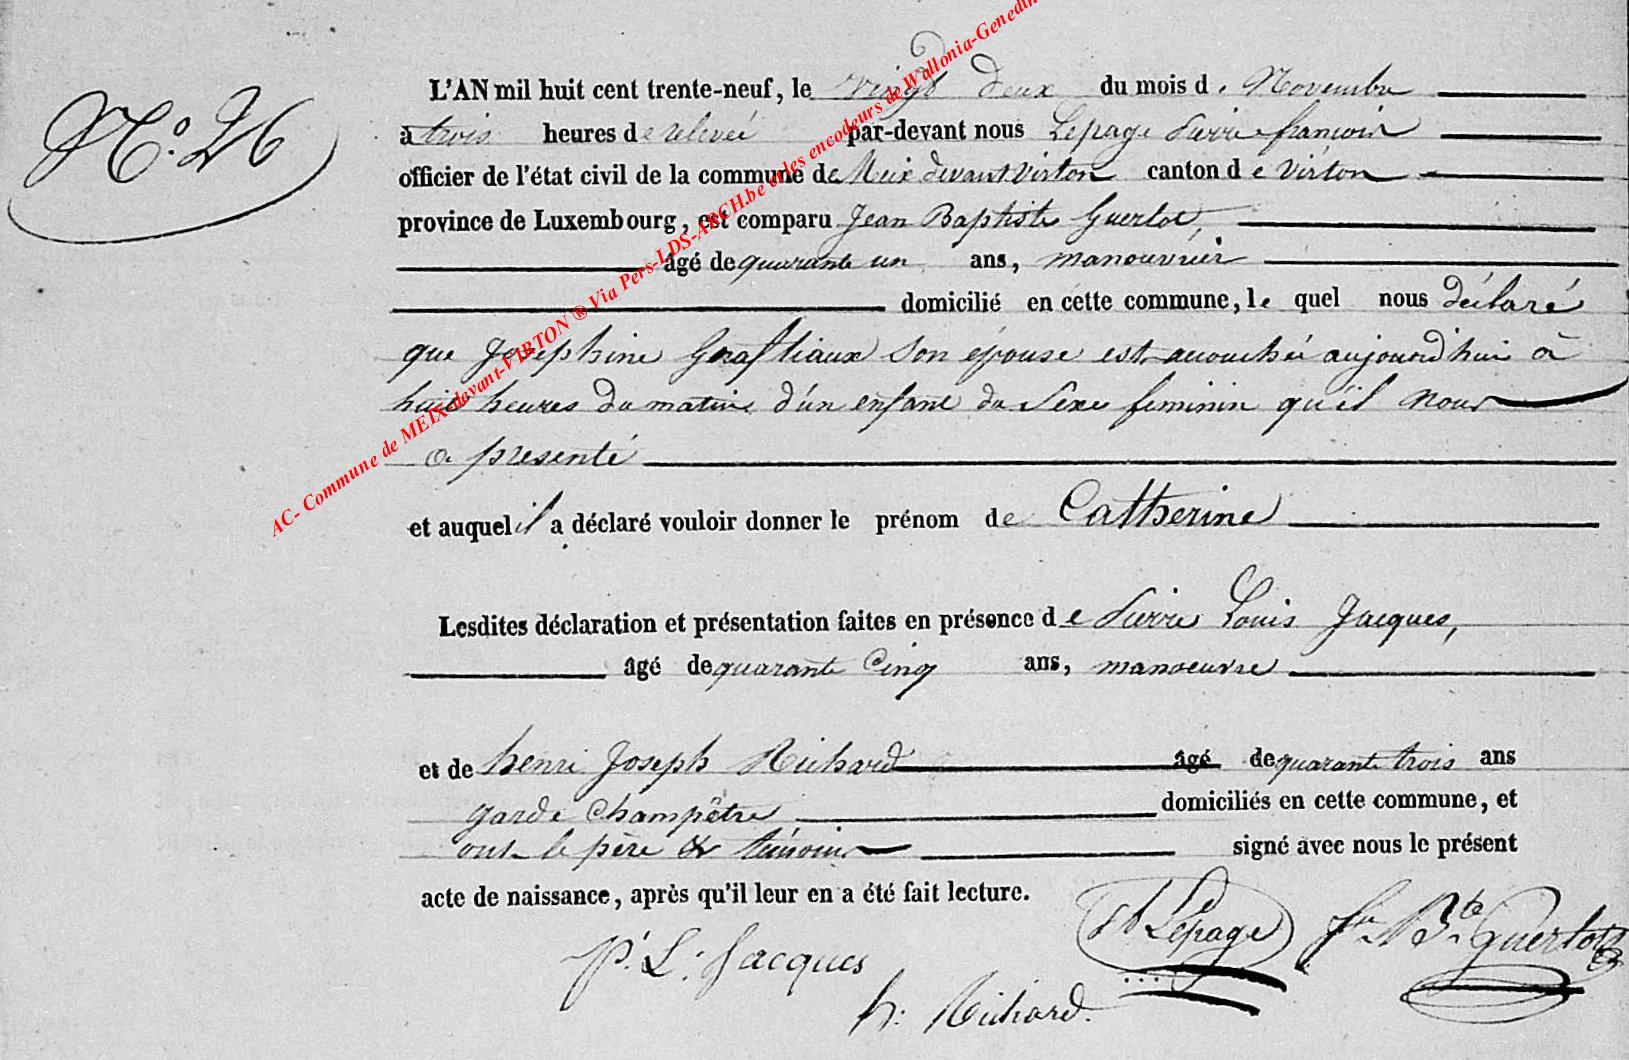 N.° 26
L'AN mil huit cent trente-neuf, le vingt deux du mois de Novembre
à trois heures de relevée par-devant nous Lepage Pierre françois
officier de l'état civil de la commune de Meix devant Virton canton de Virton
province de Luxembourg, est comparu Jean Baptiste Guerlot,
âgé de quarante un ans, manouvrier
domicilié en cette commune, le quel nous déclaré
que Josephine Graftiaux son épouse est accouchée aujourd'hui à
huit heures du matin d'un enfant du sexe feminin qu'il nous
a presenté
et auquel il a déclaré vouloir donner le prénom de Catherine
Lesdites déclaration et présentation faites en présence de Pierre Louis Jacques,
âgé de quarante cinq ans, manoeuvre
et de henri Joseph Richard âgé de quarante trois ans
garde champêtre domiciliés en cette commune, et
ont le père & témoins signé avec nous le présent
acte de naissance, après qu'il leur en a été fait lecture.
Lepage
Jn Bte Guerlot
P. L. Jacques
h. Richard.
AC- Commune de MEIX-devant-VIRTON ® Via Pers-LDS-ARCH.be et les encodeurs de Wallonia-Genedin